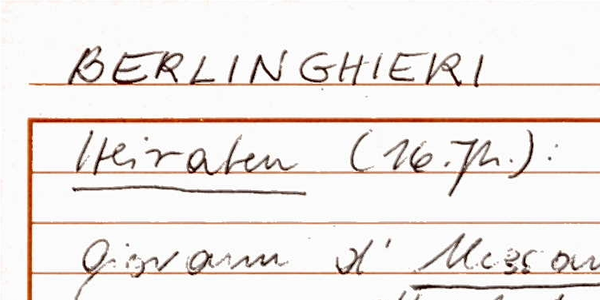 BERLINGHIERI
Heiraten (16. Jh.):
Giovanni d'